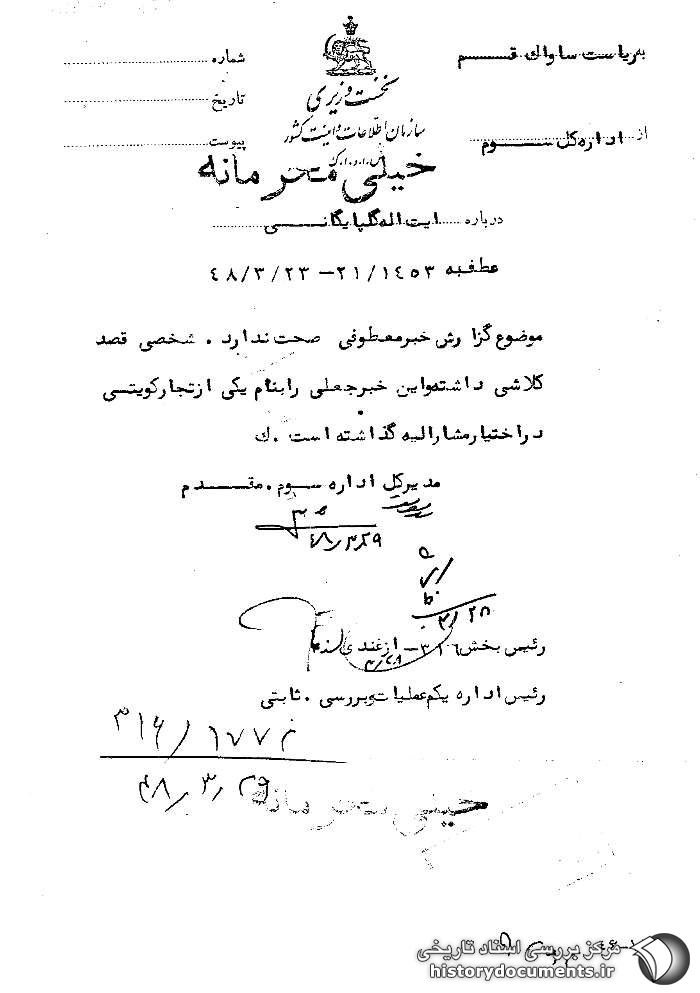 به ریاست ساواک قم
شماره
نخست وزیری
تاریخ
سازمان اطلاعات و امنیت کشور
از اداره کل سوم
پیوست
س.ا.و.ا.ک
خیلی محرمانه
درباره ایت اله گلپایگانی
عطف به ۲۱/۱۴۵۳ - ۴۸/۳/۲۳
موضوع گزارش خبر معطوفی صحت ندارد . شخصی قصد
کلاشی داشته و این خبر جعلی را بنام یکی از تجار کویتی
در اختیار مشارالیه گذاشته است . ك
مدیر کل اداره سوم . مقدم
۴۸/۳/۲۹
۳/۲۸
رئیس بخش ۳۱۶ - ازغندی
۳/۲۸
رئیس اداره یکم عملیات و بررسی . ثابتی
۳۱۶/۱۷۷۲
۴۸/۳/۲۹
خیلی محرمانه
مرکز بررسی اسناد تاریخی
historydocuments.ir